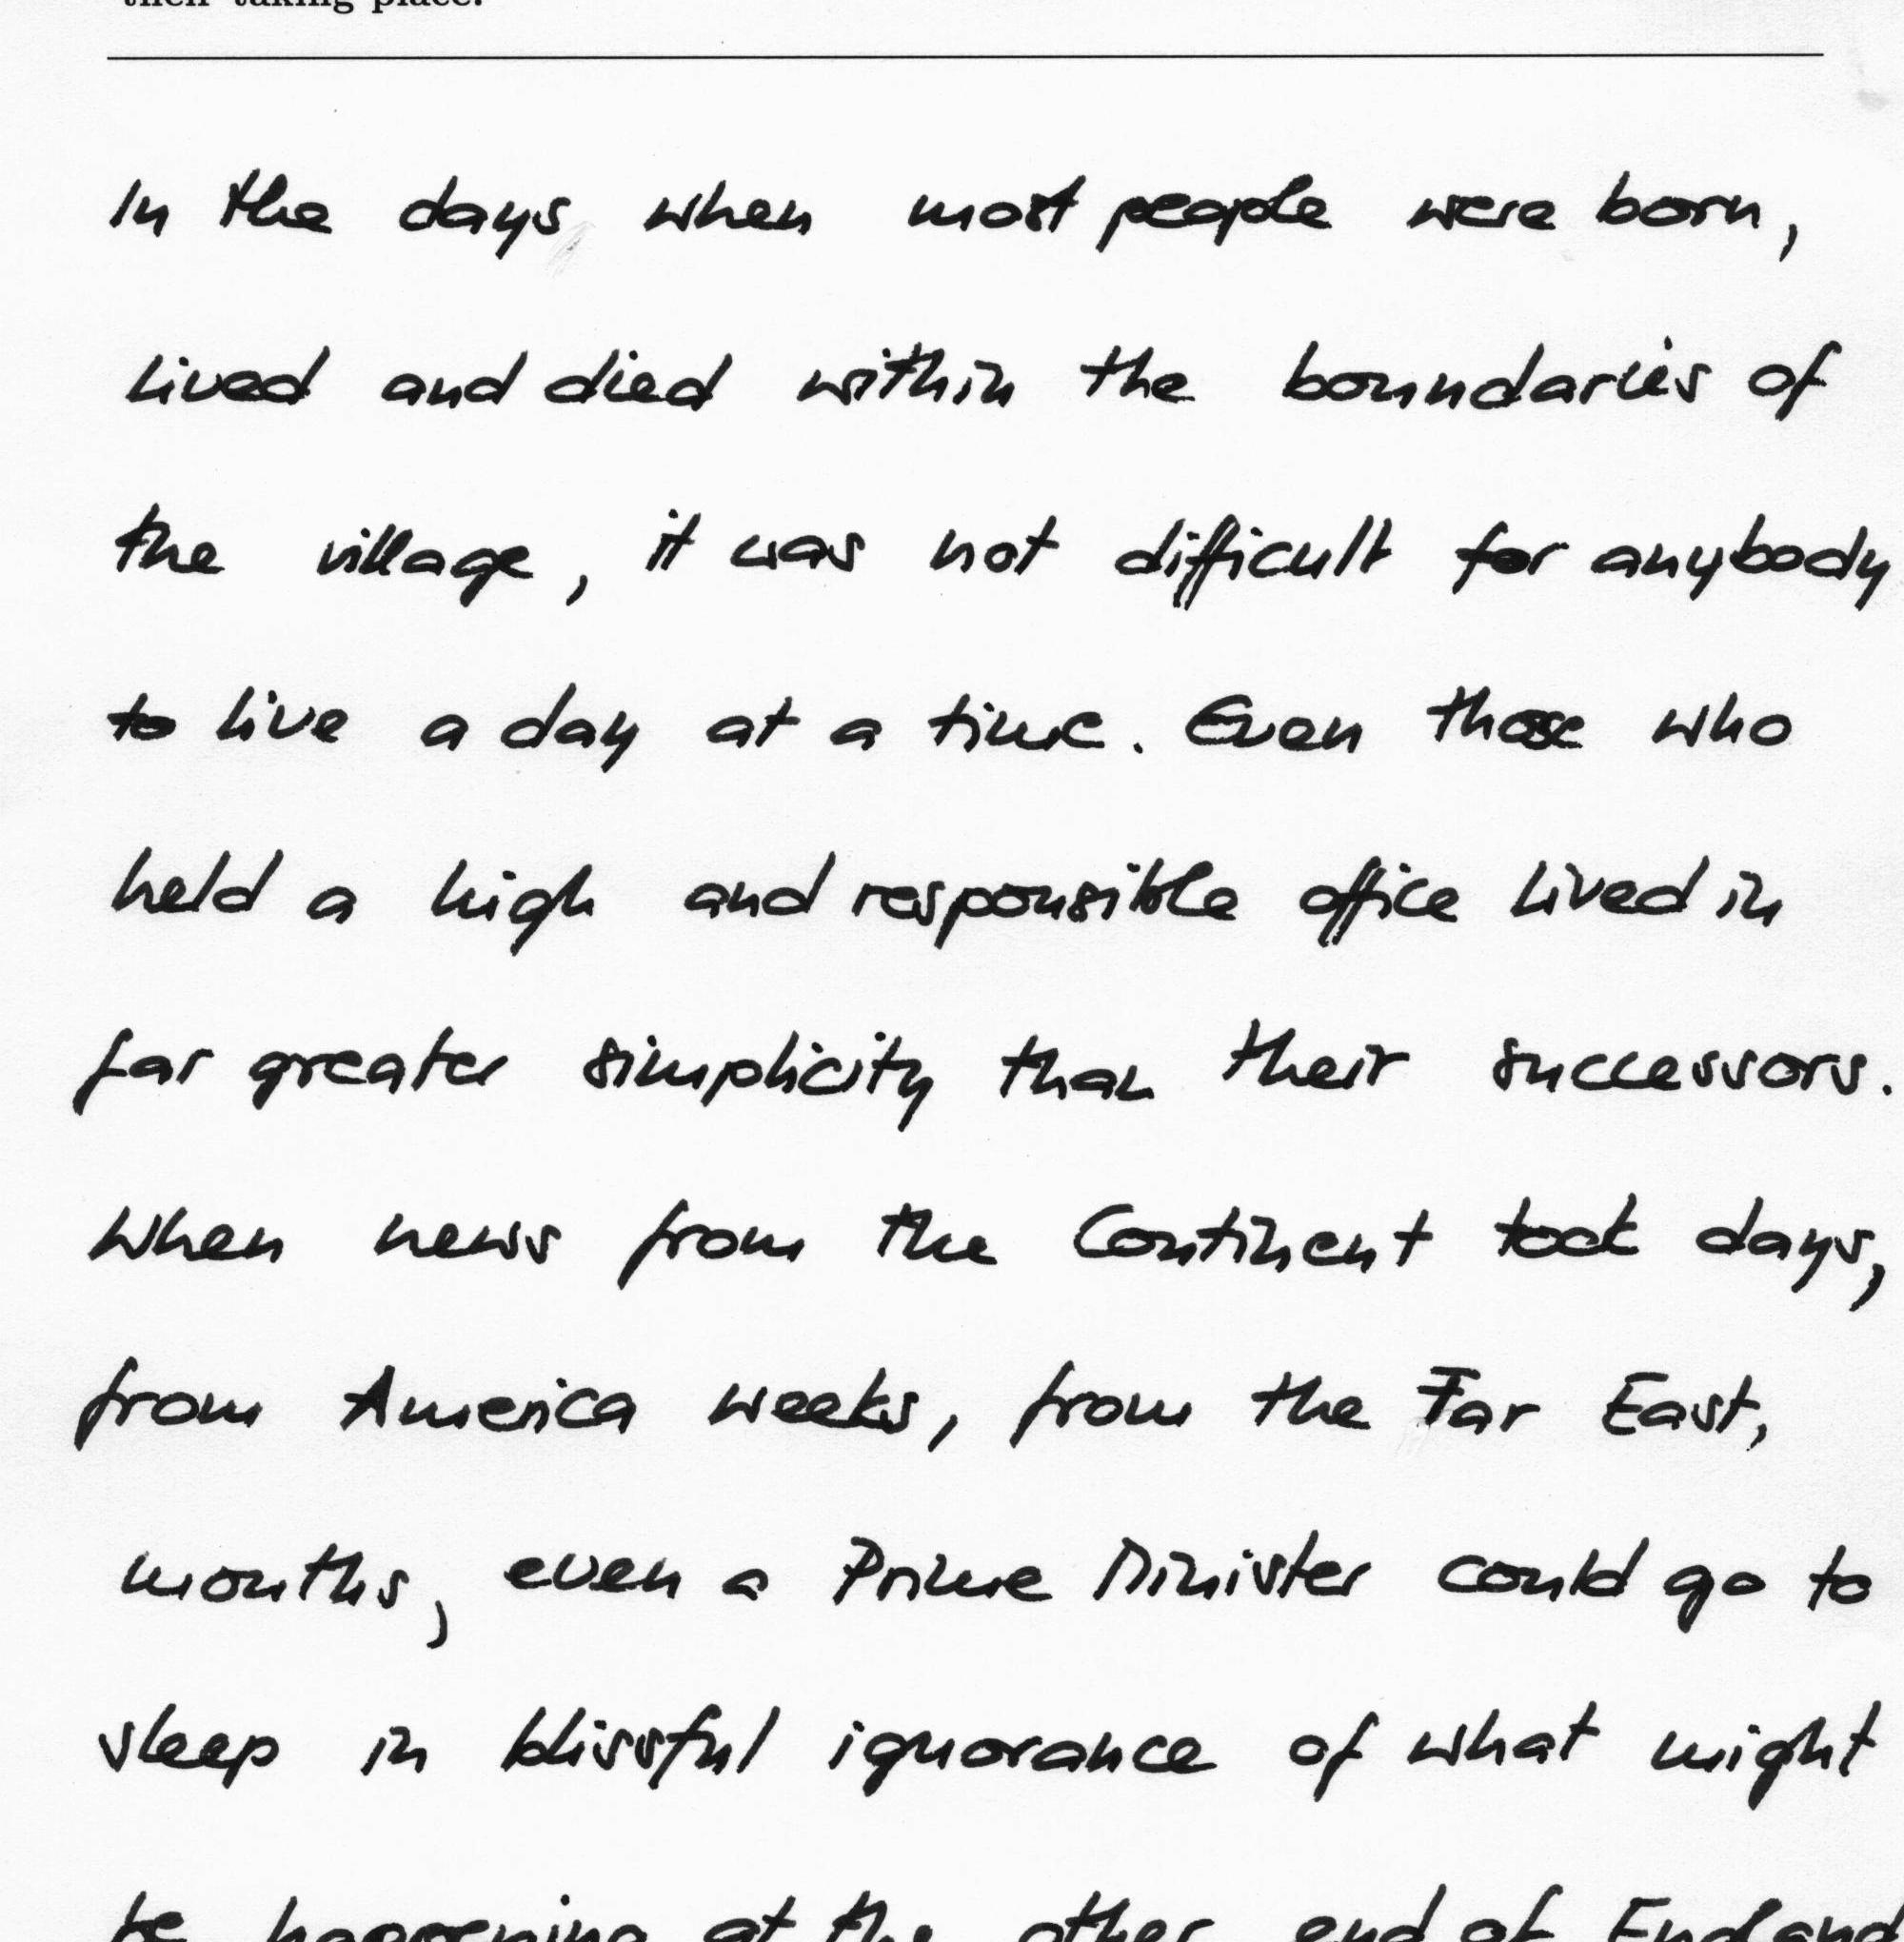 then taking place.
In the days when most people were born,
lived and died within the boundaries of
the village, it was not difficult for anybody
to live a day at a time. Even those who
held a high and responsible office lived in
far greater simplicity than their successors.
When news from the Continent took days,
from America weeks, from the Far East,
months, even a Prime Minister could go to
sleep in blissful ignorance of what might
be happening at the other end of England